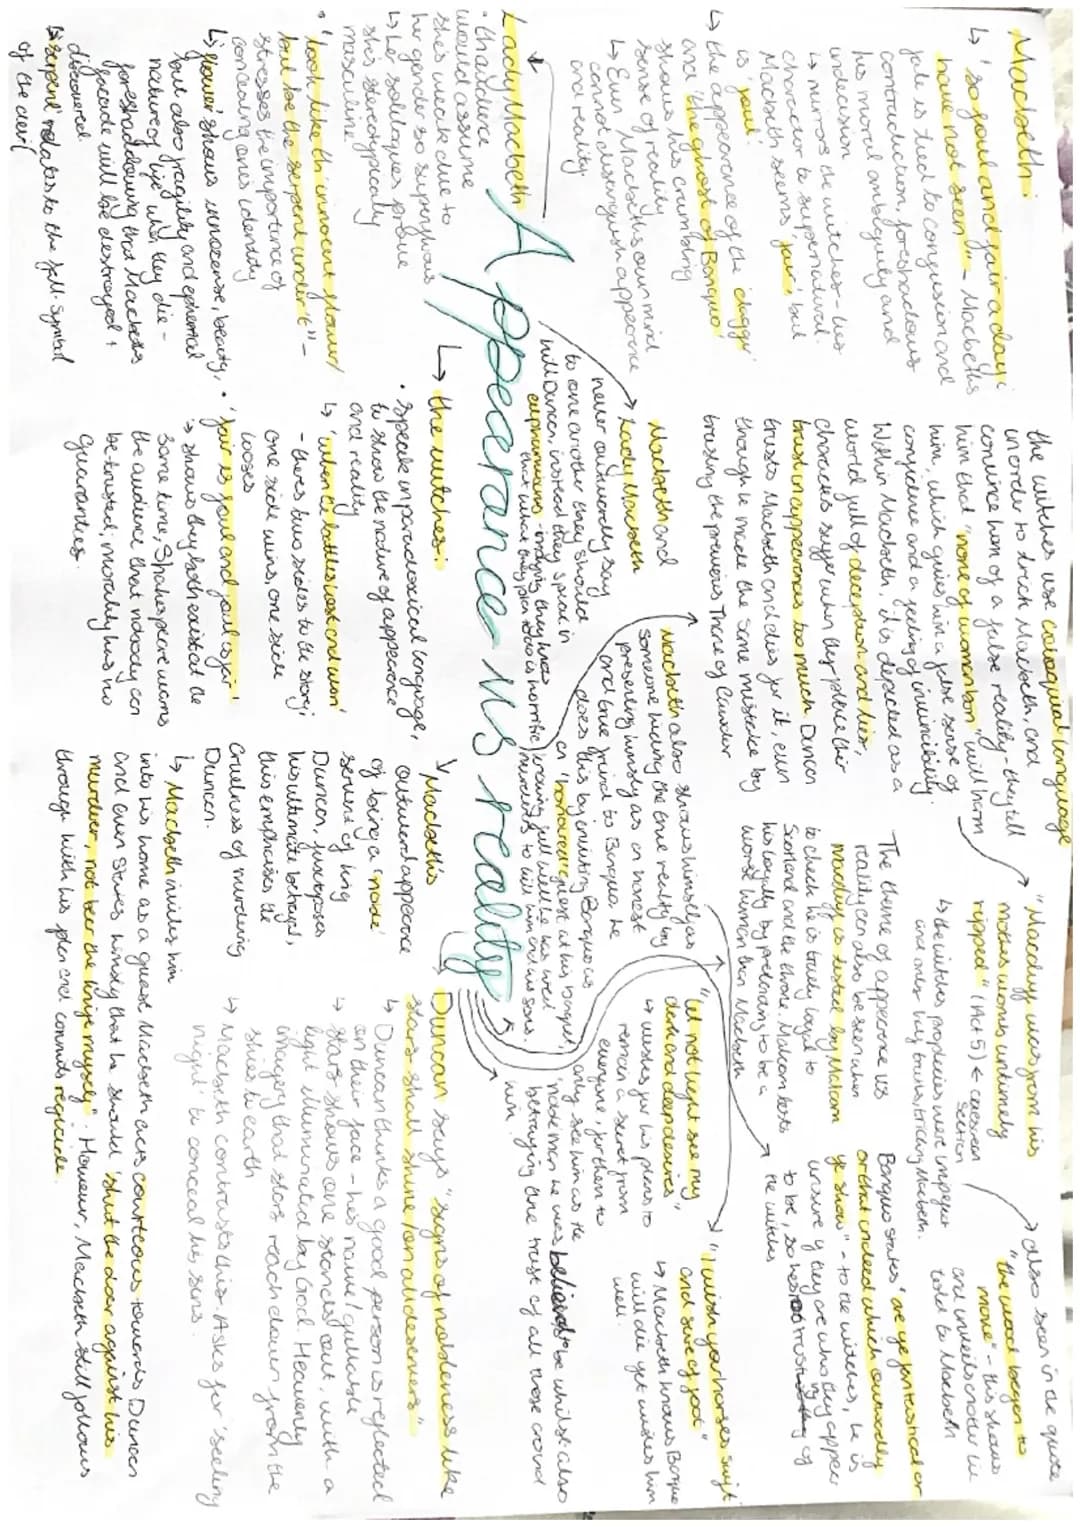 Macbeth:
↳ 'so foul and fair a day i
have not seen" - Macbeths
fate is tied to confusion and
contradiction, foreshadows
his moral ambiguity and
indecision
↳ mirrors the witches - his
character to supernatural.
Macbeth seems 'fair', but
is 'foul'
↳ the appearance of the 'dagger'
and 'the ghost of Banquo'
shows his crumbling
sense of reality
↳ Even Macbeths own mind
cannot distinguish appearance
and reality
the witches use equivocal language
in order to trick Macbeth, and
convince him of a false reality - they tell
him that 'none of woman born' will harm
him, which gives him a false sense of
confidence and a feeling of invincibility.
Within Macbeth, it is depicted as a
world full of deception and lies,
characters suffer when they place their
trust in appearances too much. Duncan
trusts Macbeth and dies for it, even
though he made the same mistake by
trusting the previous Thane of Cawdor
"Macduff was from his
mothers womb untimely
ripped" (Act 5) ← caesarean
section
↳ the witches prophecies were imperfect
and only half truths, tricking Macbeth.
→ also seen in the quote
"the wood began to
move" - this shows
told to Macbeth
The theme of appearance vs
reality can also be seen when
Macduff is tested by Malcom
to check he is truly loyal to
Scotland and the throne. Malcom tests
his loyalty by pretending to be a
worse human than Macbeth
Banquo states 'are ye fantastical or
or that indeed which outwardly
ye show" - to the witches, he is
unsure if they are who they appear
to be, so he is distrusting of
the witches
Macbeth and
Lady Macbeth
never outwardly say
to one another they should
kill Duncan, instead they speak in
euphemisms - implying they know
that what they plan to do is horrific
Macbeth also shows himself as
someone hiding the true reality by
presenting himself as an honest
and true friend to Banquo, he
does this by inviting Banquo as
an 'honoured' guest at his banquet,
knowing full well he has well
hired murderers to kill him and his sons.
"let not light see my
dark and deep desires"
↳ wishes for his plans to
remain a secret from
everyone, for them to
only see him as the
'noble man' he was believed to be whilst also
betraying the trust of all those around
him.
"I wish your horses swift
and sure of foot"
↳ Macbeth knows Banquo
will die yet wishes him
well.
Appearance vs reality
Lady Macbeth
• the audience
would assume
she's weak due to
her gender so surprising how
↳ her soliloquies prove
she's stereotypically
masculine
• "look like th'innocent flower/
but be the serpent under't" -
stresses the importance of
concealing ones identity
↳ 'flower' shows innocence, beauty,
but also fragility and ephemeral
nature of life when they die -
foreshadowing that Macbeths
facade will be destroyed +
discovered.
↳ 'serpent' relates to the fall. Symbol
of the devil
↳ the witches:
• speak in paradoxical language,
to show the nature of appearance
and reality
↳ 'when the battles lost and won'
- theres two sides to the story;
one side wins, one side
looses
• 'fair is foul and foul is fair'
↳ shows they both exist at the
same time, Shakespeare warns
the audience that nobody can
be trusted; morality has no
guarantees.
↳ Macbeth's
outward appearance
of being a 'noble'
servant of king
Duncan, juxtaposes
his ultimate betrayal,
this emphasises the
cruelness of murdering
Duncan.
↳ Macbeth invites him
into his home as a guest. Macbeth acts courteous towards Duncan
and even states himself that he should 'shut the door against his
murderer, not bear the knife myself'. However, Macbeth still follows
through with his plan and commits regicide.
Duncan says "signs of nobleness like
stars shall shine/on all deservers"
↳ Duncan thinks a good person is reflected
on their face - hes naive/gullible
↳ stars shows one stands out, with a
light illuminated by God. Heavenly
imagery that stars reach down from the
skies to earth
↳ Macbeth contrasts this. Asks for 'seeling
night' to conceal his sins.